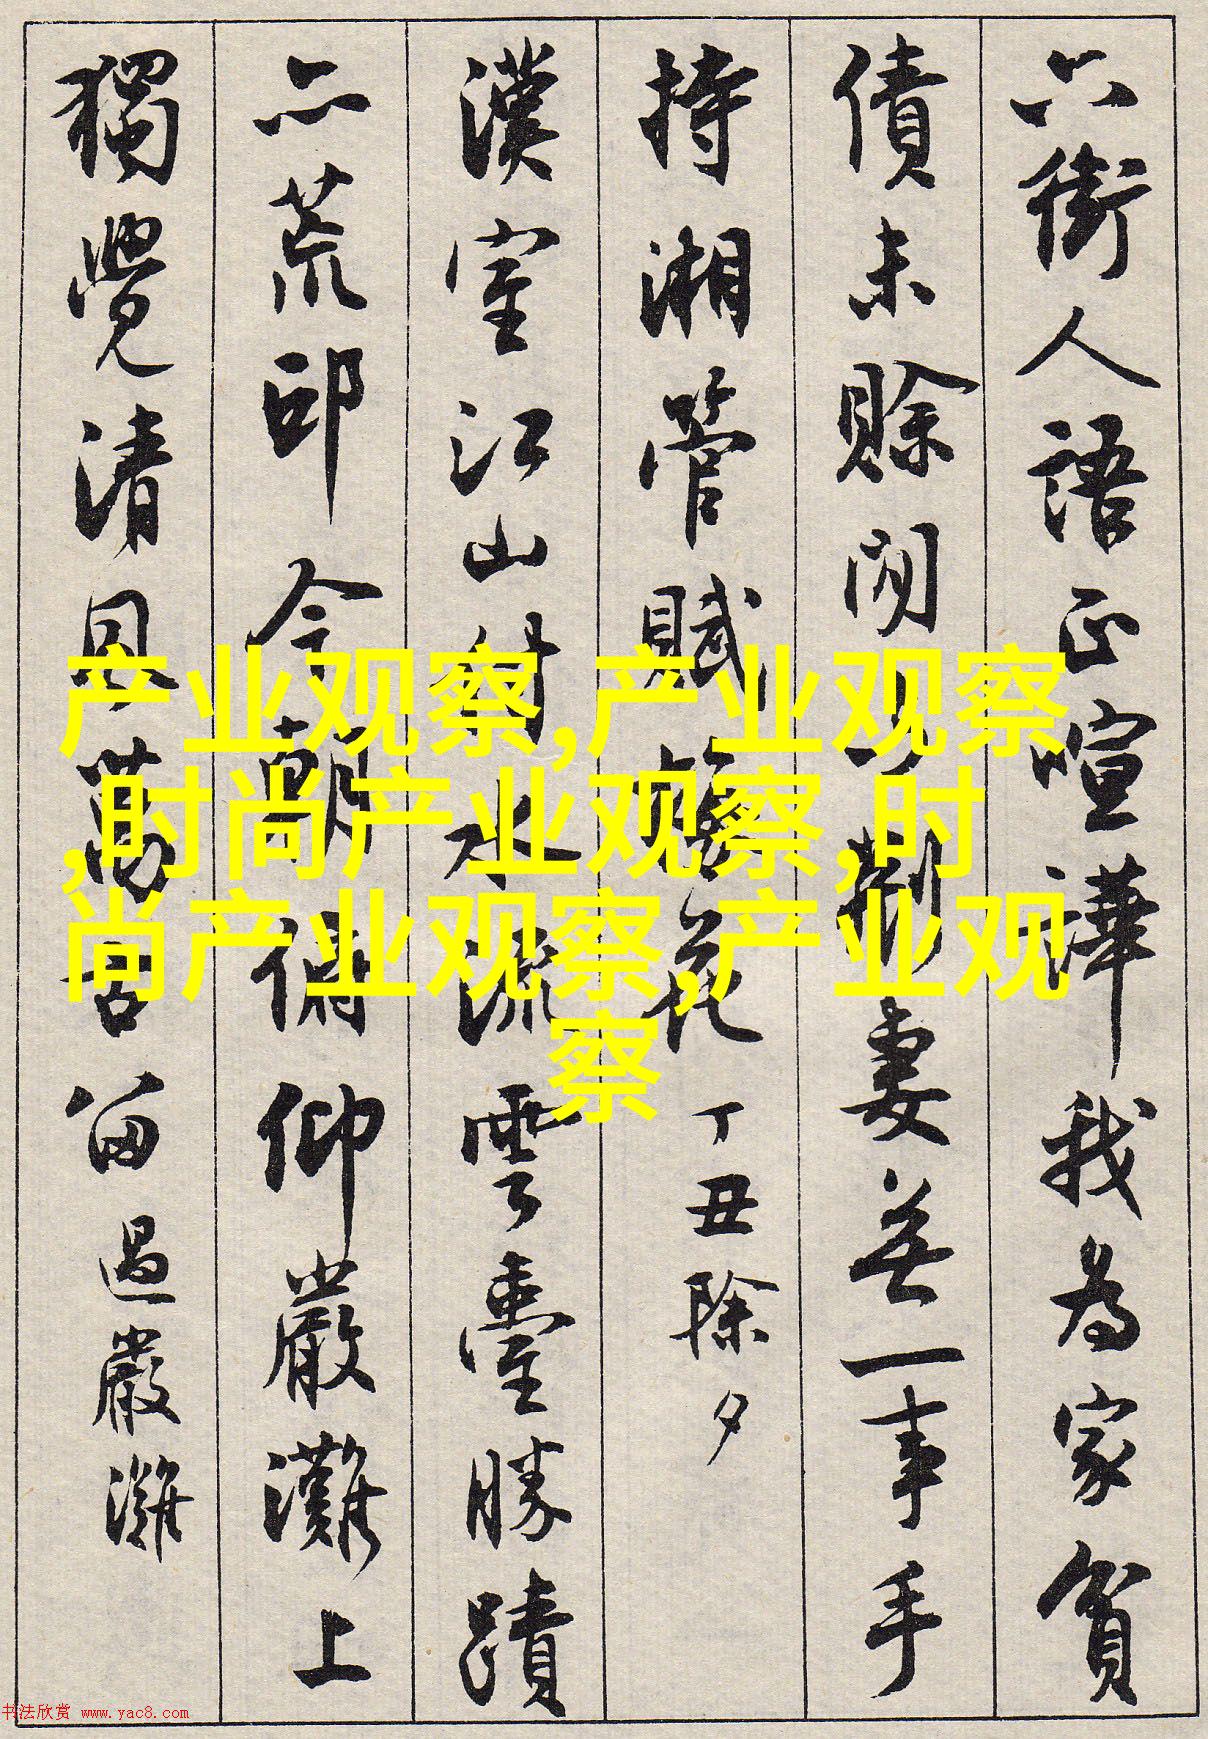 六街人語正喧譁我為家貧
債未賒閒荊妻無一事手
持湘管賦花丁丑除夕
漢室江山付水流雲臺勝蹟
亦荒邱今朝俯仰嚴灘上
獨覺清風萬古留過嚴灘
产业观察,产业观察
,时尚产业观察,时
尚产业观察,产业观
察
书法欣赏 www.yac8.com